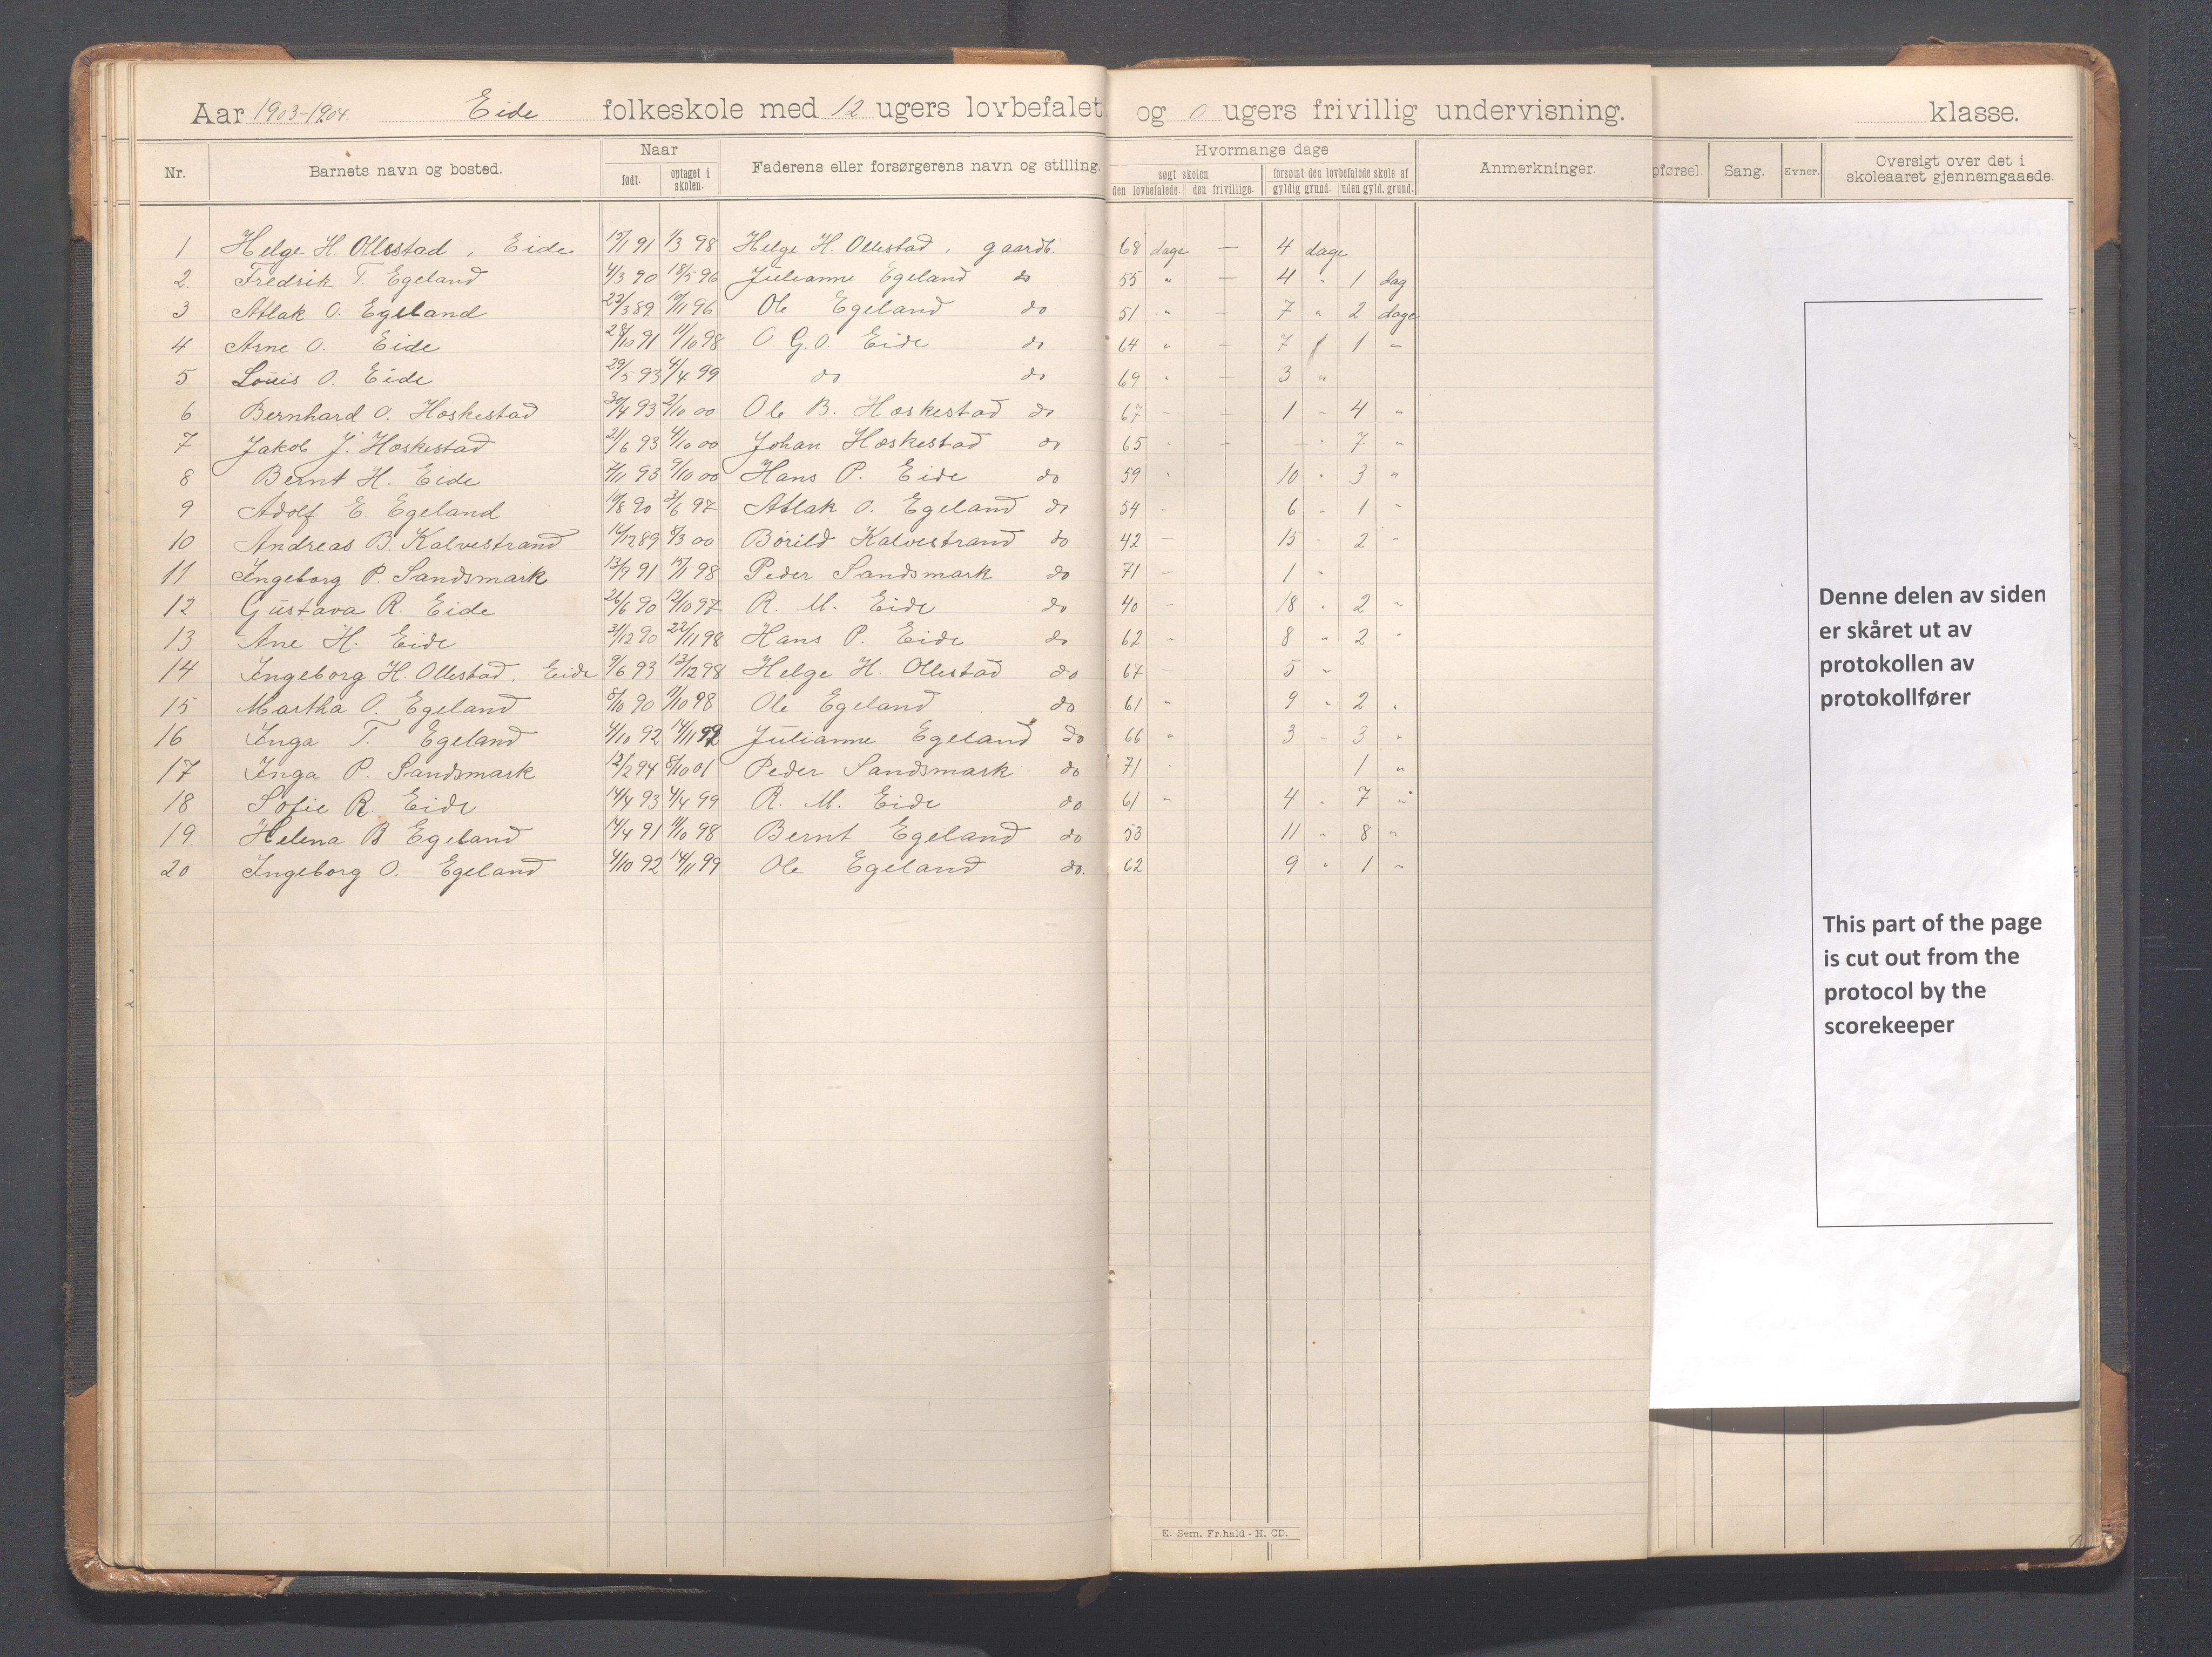 Aar 1903-1904. Eide folkeskole med 12 ugers lovbefalet og 0 ugers frivillig undervisning. klasse.
Nr. Barnets navn og bosted. Naar født. optaget i skolen. Faderens eller forsørgerens navn og stilling. Hvormange dage søgt skolen den lovbefalede. den frivillige. forsømt den lovbefalede skole af gyldig grund. uden gyld. grund. Anmerkninger. pførsel. Sang. Evner. Oversigt over det i skoleaaret gjennemgaaede.
1 Helge H. Ollestad, Eide 15/1 91 1/3 98 Helge H. Ollestad, gaardb. 68 dage — 4 dage
2. Fredrik T. Egeland 4/3 90 18/5 96 Julianne Egeland do 55 " — 4 " 1 dag
3 Atlak O. Egeland 23/3 89 10/11 96 Ole Egeland do 51 " — 7 " 2 dage
4 Arne O. Eide 28/10 91 11/10 98 O. G. O. Eide do 64 " — 7 1 "
5 Louis O. Eide 29/5 93 4/4 99 do do 69 " — 3 "
6 Bernhard O. Hoskestad 30/4 93 2/10 00 Ole B. Hoskestad do 67 " — 1 " 4 "
7 Jakob J. Hoskestad 21/6 93 4/10 00 Johan Hoskestad do 65 " — — " 7 "
8 Bernt H. Eide 7/11 93 9/10 00 Hans P. Eide do 59 " 10 " 3 "
9 Adolf E. Egeland 19/8 90 3/6 97 Atlak O. Egeland do 54 " 6 " 1 "
10 Andreas B. Kalvestrand 16/12 89 8/3 00 Borild Kalvestrand do 42 " 15 " 2 "
11 Ingeborg P. Sandsmark 13/9 91 15/11 98 Peder Sandsmark do 71 " 1 "
12 Gustava R. Eide 26/6 90 12/10 97 R. M. Eide do 40 " 18 " 2 "
13 Ane H. Eide 31/12 90 22/11 98 Hans P. Eide do 62 " 8 " 2 "
14 Ingeborg H. Ollestad, Eide 9/6 93 13/12 98 Helge H. Ollestad do 67 " 5 "
15 Martha O. Egeland 8/10 90 11/10 98 Ole Egeland do 61 " 9 " 2 "
16 Inga T. Egeland 4/10 92 14/11 99 Julianne Egeland do 66 " 3 " 3 "
17 Inga P. Sandsmark 12/2 94 8/10 01 Peder Sandsmark do 71 1 "
18 Sofie R. Eide 14/4 93 4/4 99 R. M. Eide do 61 " 4 " 7 "
19. Helena B Egeland 14/4 91 11/10 98 Bernt Egeland do 53 11 " 8 "
20 Ingeborg O. Egeland 4/10 92 14/11 99 Ole Egeland do. 62 9 " 1 "
Denne delen av siden
er skåret ut av
protokollen av
protokollfører
This part of the page
is cut out from the
protocol by the
scorekeeper
E. Sem. Fr.hald - H. CD.